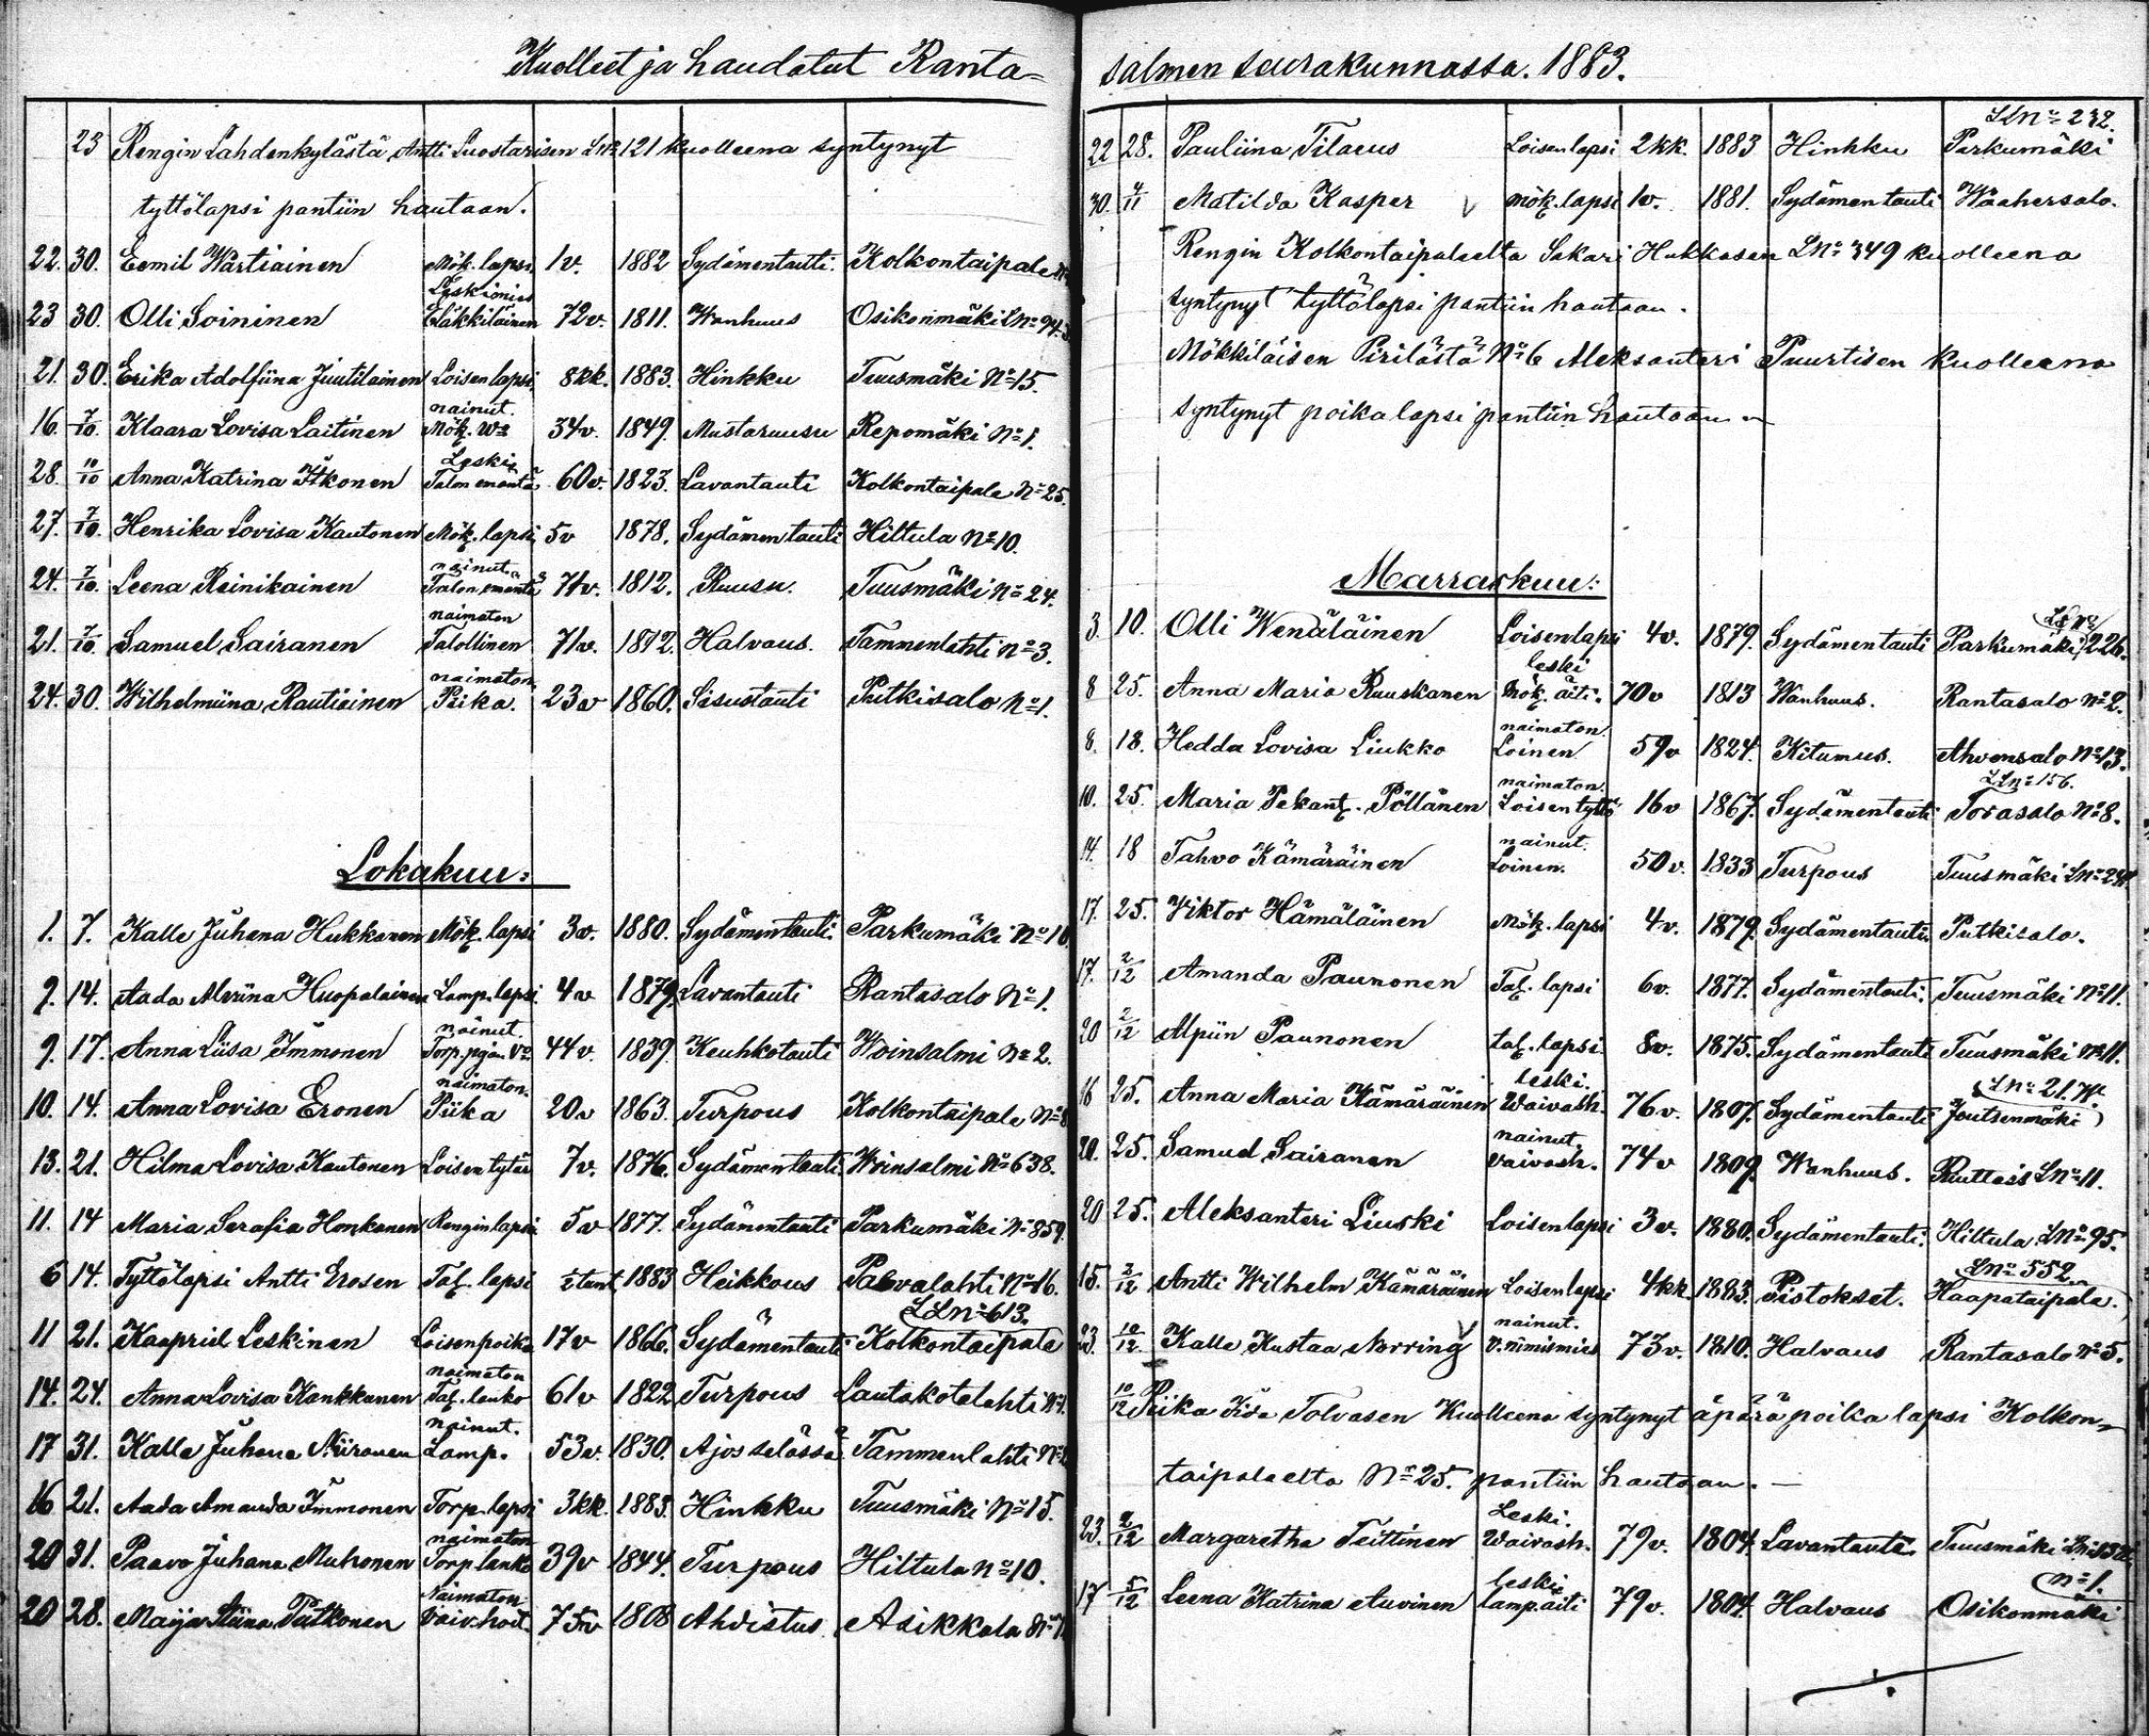 Kuolleet ja haudatut Ranta=
23 Rengin Lahdenkylästä Antti Luostarisen LN:o 121 kuolleena syntynyt
tyttölapsi pantiin hautaan.
22. 30. Eemil Wärtiainen Mök. lapsi 1v. 1882 Sydämentauti. Kolkontaipale
Leskimies
23 30. Olli Soininen Eläkkiläinen 72v. 1811. Wanhuus Osikonmäki LNo 94.
21. 30. Erika Adolfiina Juutilainen Loisen lapsi 8kk. 1883. Hinkku Tuusmäki No 15.
nainut.
16. 7/10. Klaara Lovisa Laitinen Mök. Wo 34v. 1849. Mustaruusu Repomäki No 1.
Leski
28. 10/10 Anna Katrina Itkonen Talon emäntä 60v. 1823. Lavantauti Kolkontaipale No 25.
27. 7/10. Henrika Lovisa Kautonen Mök. lapsi 5v 1878. Sydämentauti Hiltula No 10.
nainut.
24. 7/10. Leena Reinikainen Talon emäntä 71v. 1812. Ruusu. Tuusmäki No 24.
naimaton
21. 7/10. Samuel Sairanen Talollinen 71v. 1812. Halvaus. Tammenlahti No 3.
naimaton
24. 30. Wilhelmiina Rautiainen Piika. 23v 1860. Sisustauti Putkisalo No 1.
Lokakuu:
1. 7. Kalle Juhana Hukkanen Mök. lapsi 3v. 1880. Sydämentauti. Parkumäki No 10
9. 14. Aada Alviina Huopalainen Lamp. lapsi 4v 1879. Lavantauti Rantasalo No 1.
nainut.
9. 17. Anna Liisa Immonen Torp. pojan Vo 44v. 1839. Keuhkotauti Woinsalmi No 2.
naimaton.
10. 14. Anna Lovisa Eronen Piika 20v 1863. Turpous Kolkontaipale No 8
13. 21. Hilma Lovisa Kautonen Loisen tytär 7v. 1876. Sydämentauti Woinsalmi No 638.
11. 14 Maria Serafia Honkanen Rengin lapsi 5v 1877. Sydämentauti Parkumäki No 859.
6 14. Tyttölapsi Antti Erosen Tal. lapsi ½ tunt. 1883 Heikkous Palvalahti No 16.
LLNo 613.
11 21. Kaapriel Leskinen Loisen poika 17v 1866. Sydämentauti Kolkontaipale
naimaton
14. 24. Anna Lovisa Kankkunen Tal. lanko 61v 1822 Turpous Lautakotalahti No 1.
nainut.
17 31. Kalle Juhana Niiranen Lamp. 53v. 1830. Ajos selässä Tammenlahti
16 21. Aada Amanda Immonen Torp. lapsi 3kk. 1883. Hinkku Tuusmäki No 15.
naimaton
20 31. Paavo Juhana Muhonen Torp. lanko 39v 1844. Turpous Hiltula No 10.
Naimaton
20 28. Maija Stiina Putkonen Vaiv. hoit. 75v 1808 Ahdistus. Asikkala
salmen seurakunnassa. 1883.
LLNo 232.
22 28. Pauliina Tilaeus Loisen lapsi 2kk. 1883 Hinkku Parkumäki
30. 4/11 Matilda Kasper V mök. lapsi 1v. 1881. Sydämentauti Wäähersalo.
Rengin Kolkontaipaleelta Sakari Hukkasen LNo 349 kuolleena
syntynyt tyttölapsi pantiin hautaan.
Mökkiläisen Pirilästä No 6 Aleksanteri Puurtisen kuolleena
syntynyt poikalapsi pantiin hautaan
Marraskuu:
LLNo
3. 10. Olli Wenäläinen Loisen lapsi 4v. 1879. Sydämentauti Parkumäki 226.
leski
8 25. Anna Maria Ruuskanen Mök. äiti. 70v 1813 Wanhuus. Rantasalo No 2.
naimaton.
8. 18. Hedda Lovisa Liukko Loinen 59v 1824. Kitumus. Ahvensalo No 13.
naimaton. LLNo 156.
10. 25. Maria Pekant. Pöllänen Loisen tyttö 16v 1867. Sydämentauti Torasalo No 8.
nainut.
14. 18 Tahvo Kämäräinen Loinen. 50v. 1833 Turpous Tuusmäki
17. 25. Viktor Hämäläinen Mök. lapsi 4v. 1879. Sydämentauti Putkisalo.
17. 2/12 Amanda Paunonen Tal. lapsi 6v. 1877. Sydämentauti. Tuusmäki No 11.
20 2/12 Alpiin Paunonen tal. lapsi. 8v. 1875. Sydämentauti Tuusmäki No 11.
leski. LNo 21.
16 25. Anna Maria Kämäräinen Waivash. 76v. 1807. Sydämentauti Joutsenmäki
nainut.
20. 25. Samuel Sairanen vaivash. 74v 1809. Wanhuus. Ruutlass LNo 11.
20 25. Aleksanteri Liuski Loisen lapsi 3v. 1880. Sydämentauti. Hiltula LNo 95.
LNo 552
15. 2/12 Antti Wilhelm Kämäräinen Loisen lapsi 4kk. 1883. Pistokset. Haapataipale.
nainut.
23. 10/12. Kalle Kustaa Norring V v. nimismies 73v. 1810. Halvaus Rantasalo No 5.
10/12 Piika Iida Tolvasen Kuolleena syntynyt äpäräpoika lapsi Kolkon=
taipaleelta No 25. pantiin hautaan. —
Leski.
23. 2/12 Margaretha Teittinen Waivash. 79v. 1804. Lavantauti. Tuusmäki
leski No 1.
17 5/12 Leena Katrina Auvinen lamp. äiti 79v. 1804. Halvaus Osikonmäki